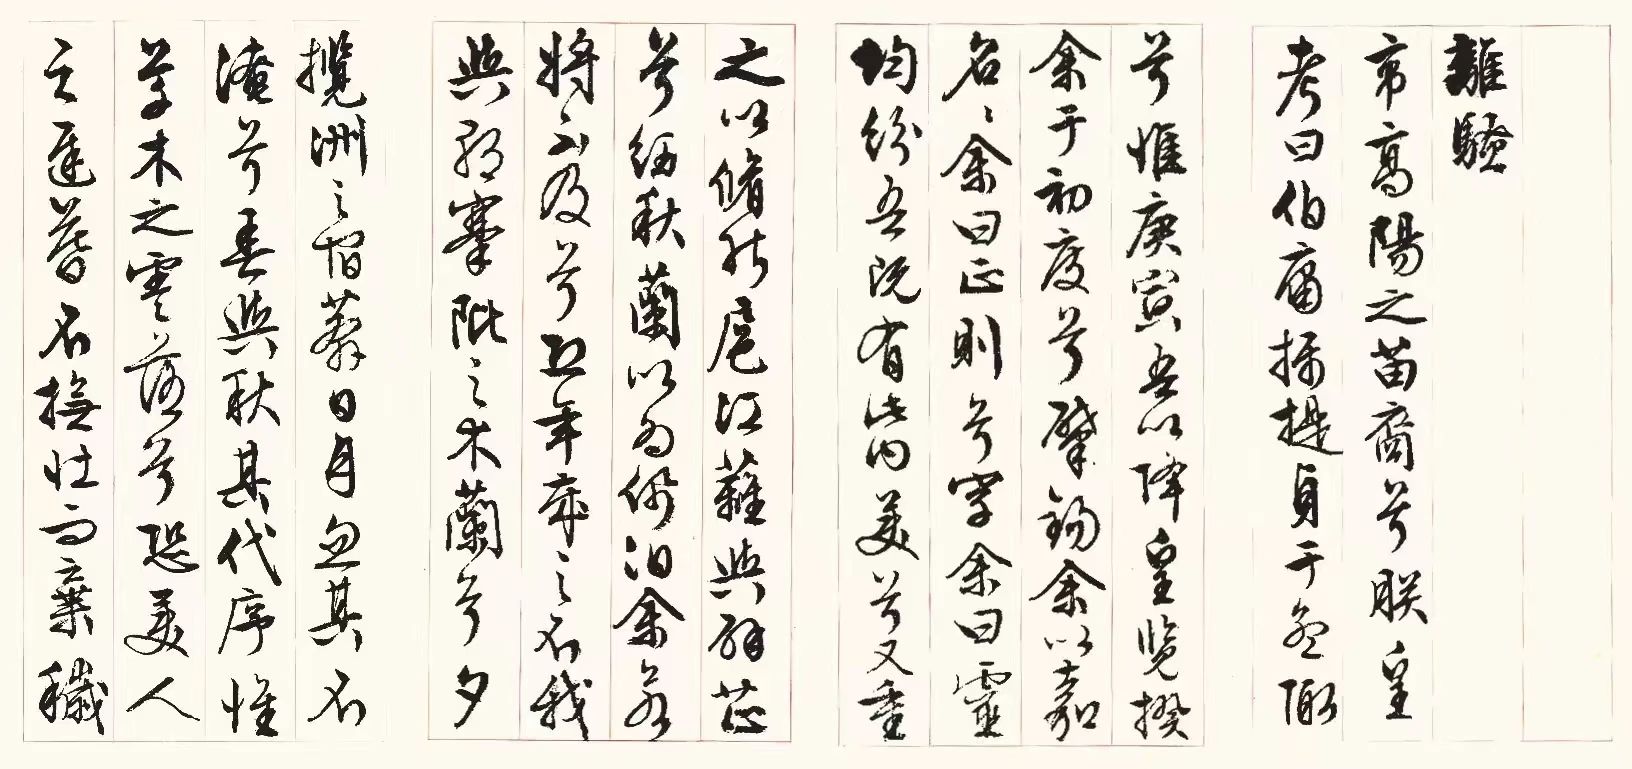 離騷
帝高陽之苗裔兮朕皇
考曰伯庸攝提貞于孟陬
兮惟庚寅吾以降皇覽揆
余于初度兮肇錫余以嘉
名〻余曰正則兮字余曰靈
均紛吾既有此內美兮又重
之以脩能扈江蘺與辟芷
兮紉秋蘭以為佩汩余若
將不及兮恐年歲之不我
與朝搴阰之木蘭兮夕
攬洲之宿莽日月忽其不
淹兮春與秋其代序惟
草木之零落兮恐美人
之遲暮不撫壯而棄穢